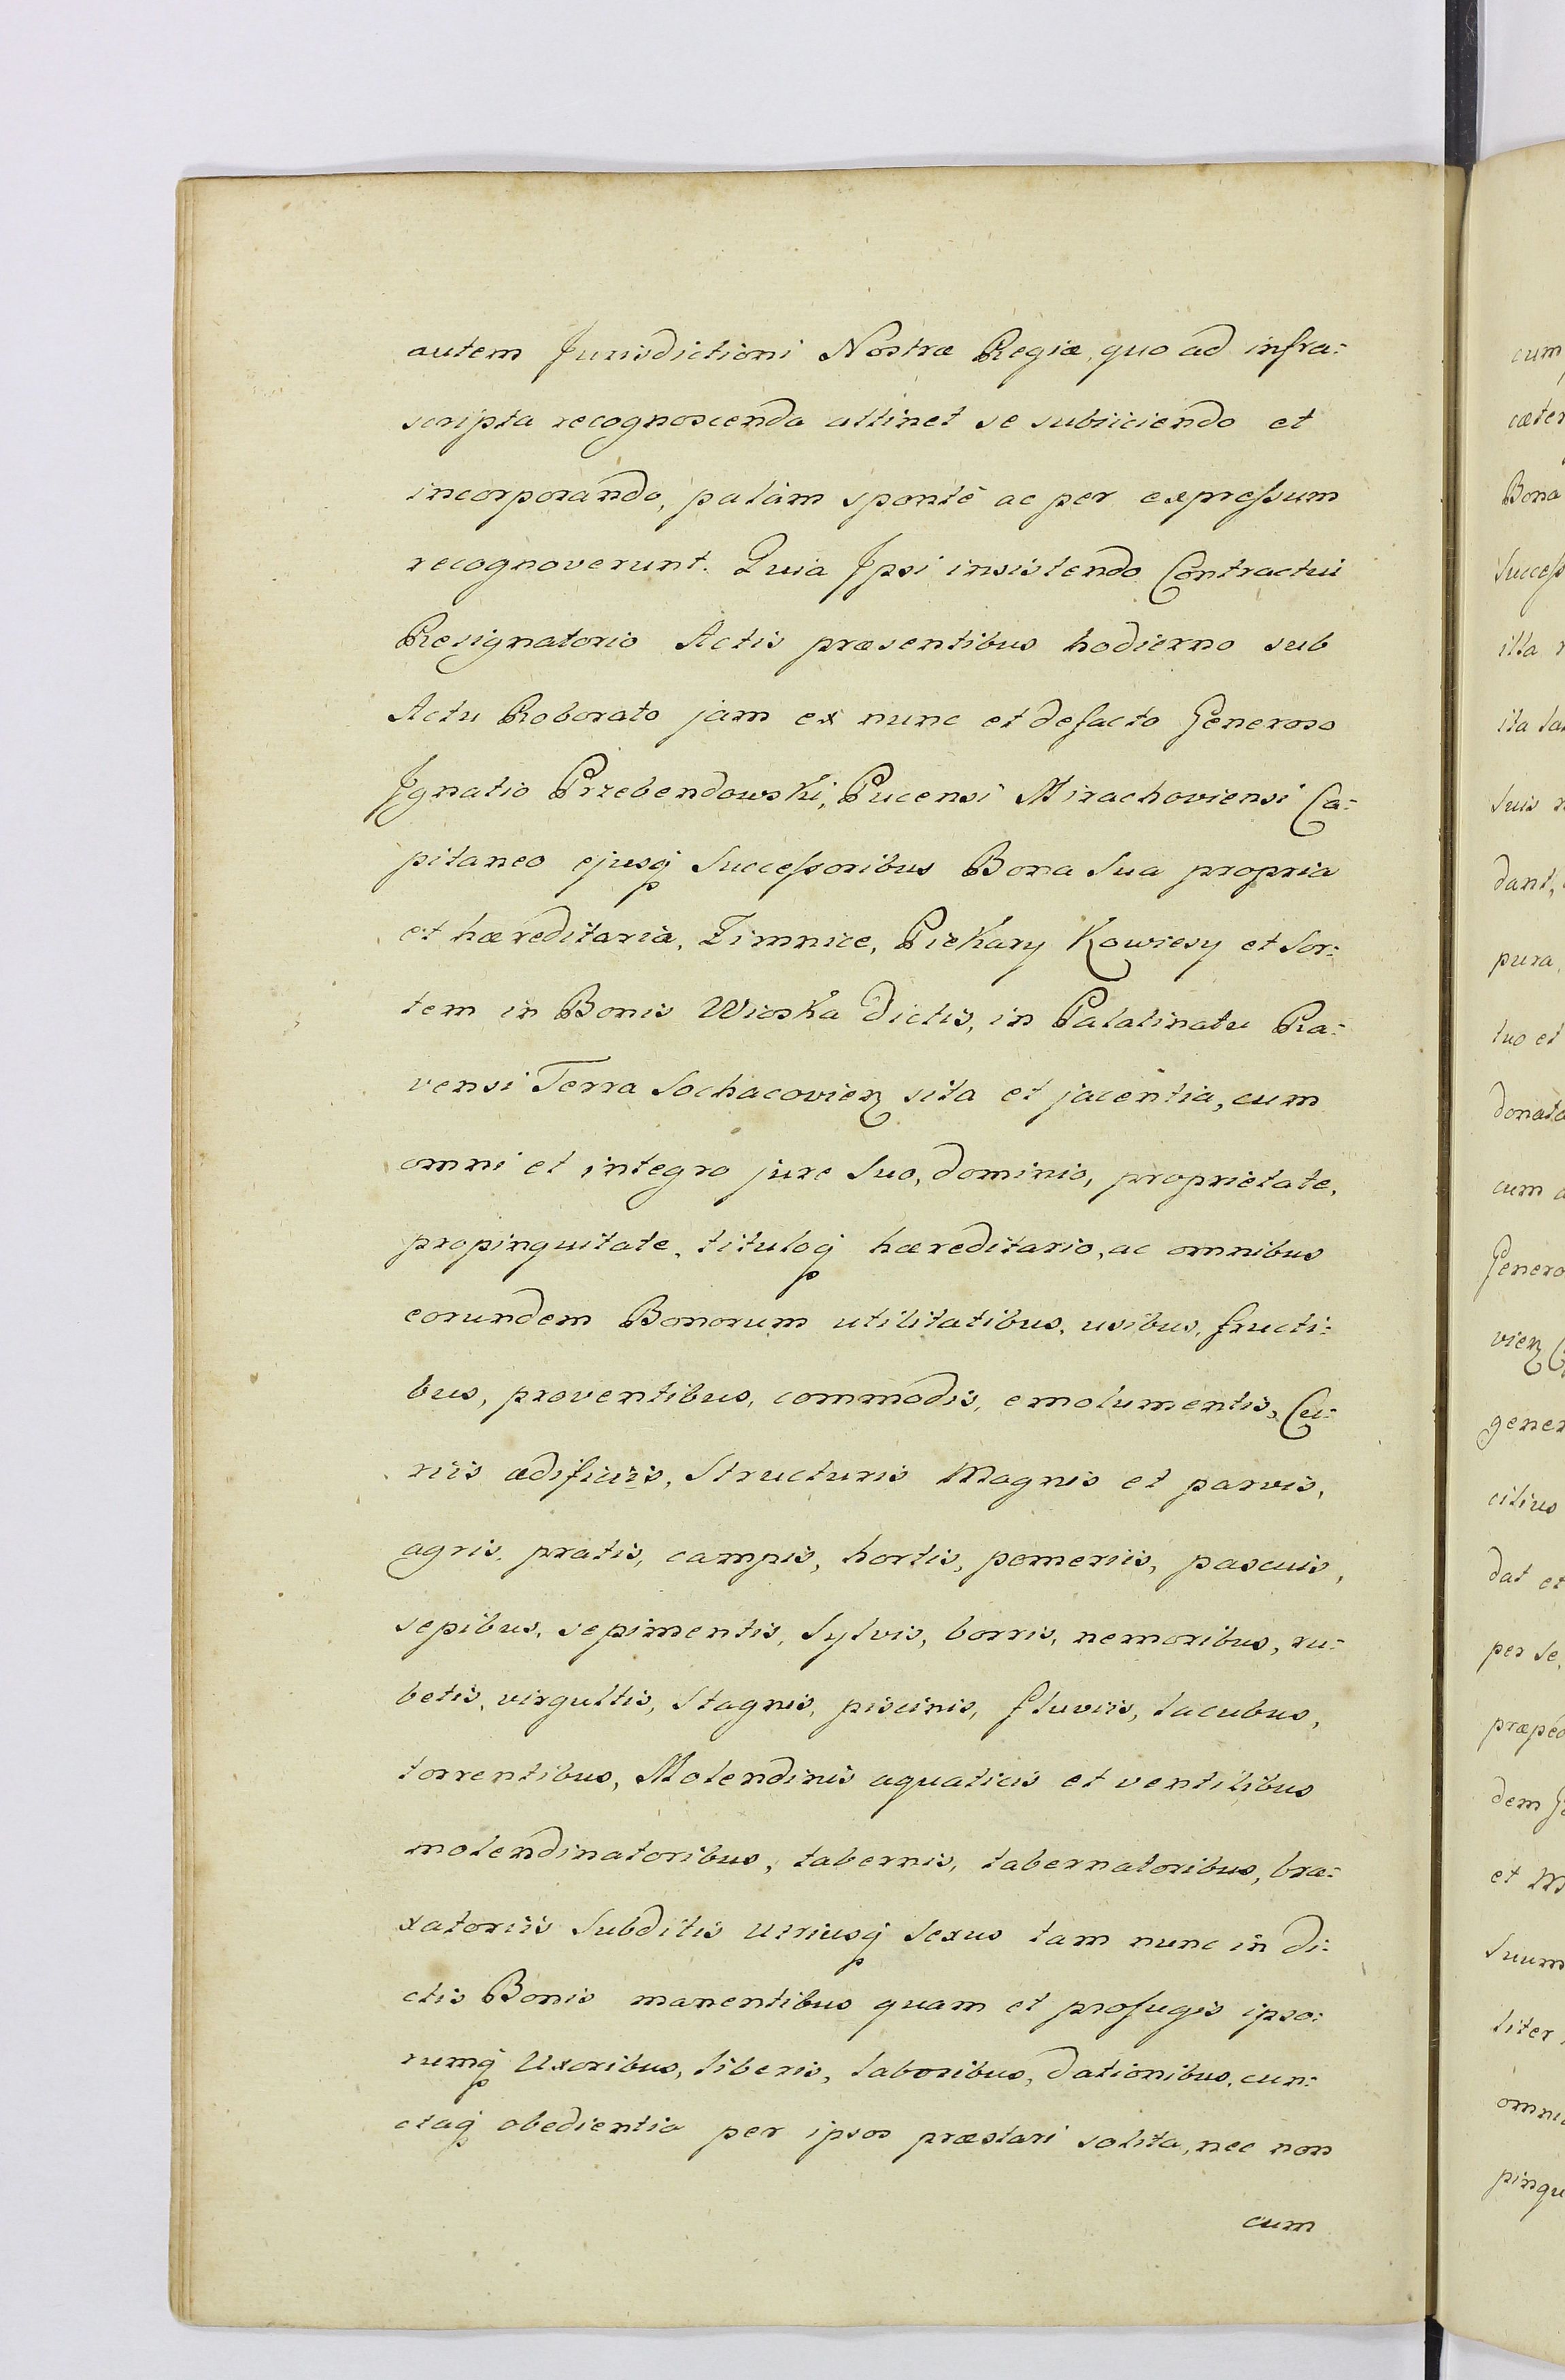 autem Jurisdictioni Nostræ Regiæ, quo ad infra:
scripta recognoscenda attinet se subiiciendo et
incorporando, palàm spontè ac per expreſsum
recognoverunt. Quia Ipsi insistendo Contractui
Resignatorio Actis præsentibus hodierno sub
Actu Roborato jam ex nunc et defacto Generoso
Ignatio Przebendowski, Pucensi Mirachoviensi Ca:
pitaneo ejusq́ Succeſsoribus Bona Sua propria
et hæreditaria, Zimnice, Piekary Kowiesy et Sor:
tem in Bonis Wioska dictis, in Palatinatu Ra:
vensi Terra Sochacovien sita et jacentia, cum
omni et integro jure Suo, dominio, proprietate,
propinquitate, tituloq́ hæreditario, ac omnibus
eorundem Bonorum utilitatibus, usibus, fructi:
bus, proventibus, commodis, emolumentis, Cu:
riis ædificiis, Structuris Magnis et parvis,
agris, pratis, campis, hortis, pomeriis, pascuis,
sepibus, sepimentis, Sylvis, borris, nemoribus, ru:
betis, virgultis, Stagnis, piscinis, fluviis, lacubus,
torrentibus, Molendinis aquaticis et ventilibus
molendinatoribus, tabernis, tabernatoribus, bra:
xatoriis Subditis utriusq́ Sexus tam nunc in di:
ctis Bonis manentibus quam et profugis ipso:
rumq́ Uxoribus, liberis, laboribus, dationibus, cun:
ctaq́ obedientia per ipsos præstari solita, nec non
cum
cum
Bona
Succeſs
illa
ita
Suis
dant,
pura,
tuo et
donat
cum
Genero
vien
gener
citius
dat et
per se,
præpe
dem
et
Suum
liter
omni
pinqu